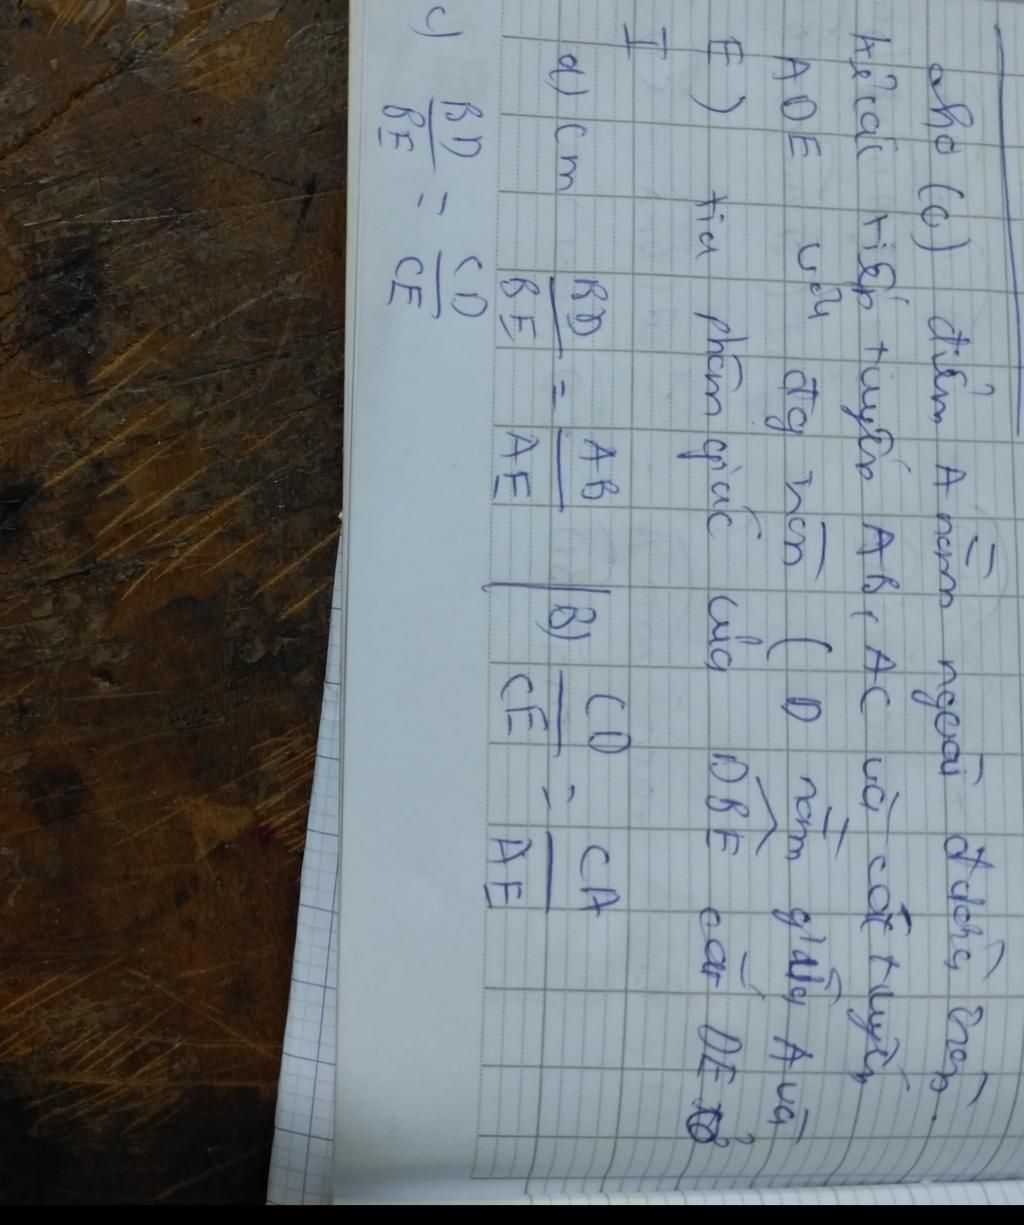 cho (O) điểm A nằm ngoài đường tròn.
kẻ các tiếp tuyến AB, AC và cát tuyến
ADE với đg tròn ( D nằm giữa A và
E) tia phân giác của DBE cắt DE ở
I
a) Cm BD/BE = AB/AE B) CD/CE = CA/AE
c) BD/BE = CD/CE